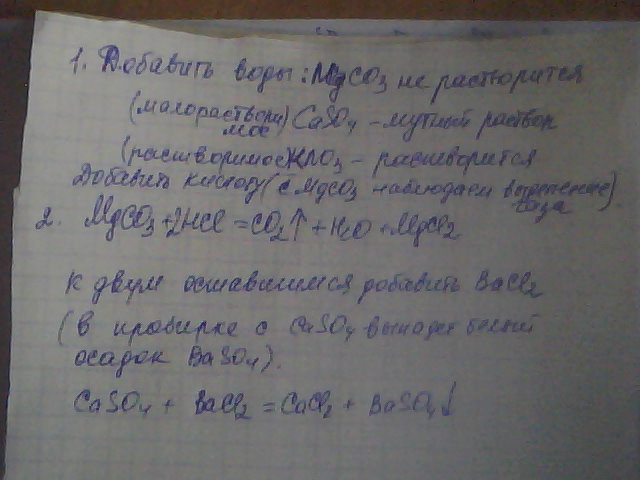 1. Добавить воды: MgCO3 не растворится
(малораствори
мое) CaSO4 - мутный раствор
(растворимое) KNO3 - растворится
Добавить кислоту (с MgCO3 наблюдаем выделение
газа).
2. MgCO3 + 2HCl = CO2↑ + H2O + MgCl2
К двум оставшимся добавить BaCl2
(в пробирке с CaSO4 выпадет белый
осадок BaSO4).
CaSO4 + BaCl2 = CaCl2 + BaSO4↓